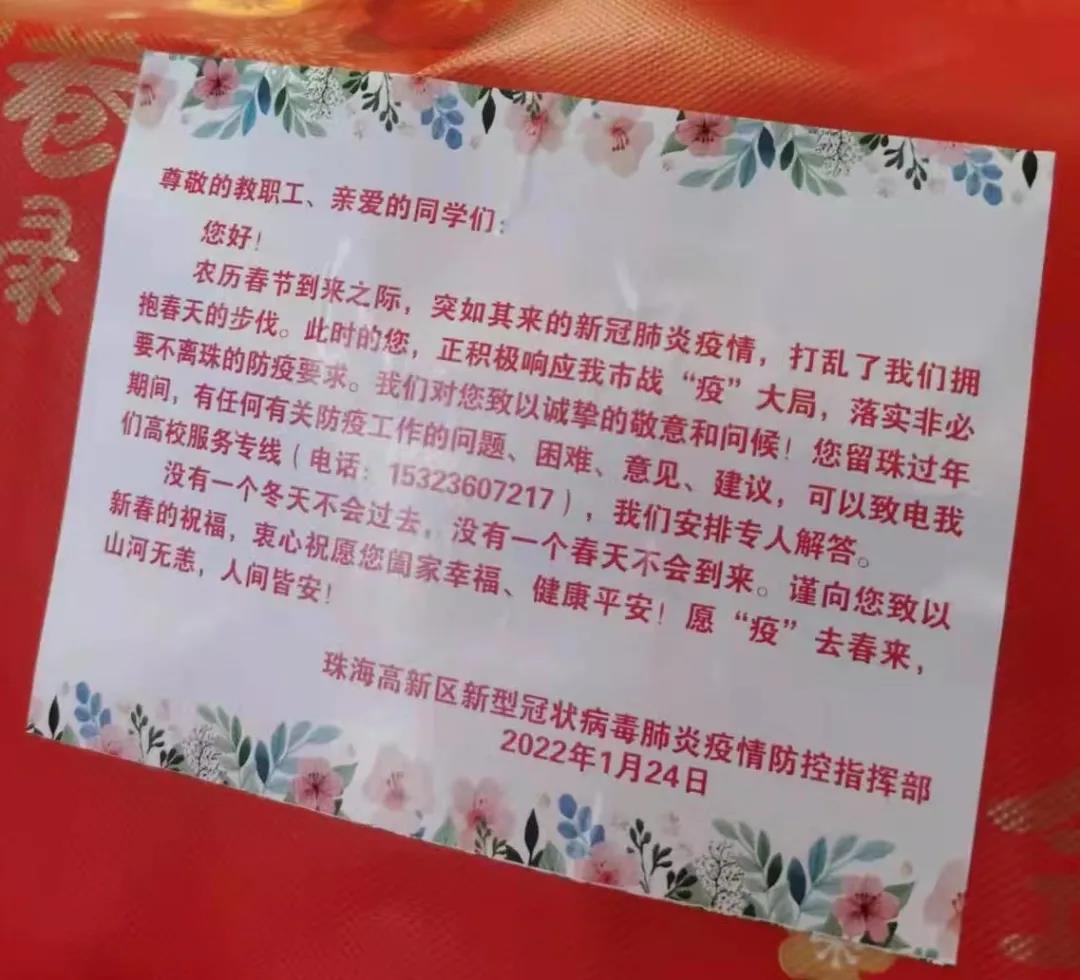 尊敬的教职工、亲爱的同学们：
您好！
农历春节到来之际，突如其来的新冠肺炎疫情，打乱了我们拥
抱春天的步伐。此时的您，正积极响应我市战“疫”大局，落实非必
要不离珠的防疫要求。我们对您致以诚挚的敬意和问候！您留珠过年
期间，有任何有关防疫工作的问题、困难、意见、建议，可以致电我
们高校服务专线（电话：15323607217），我们安排专人解答。
没有一个冬天不会过去，没有一个春天不会到来。谨向您致以
新春的祝福，衷心祝愿您阖家幸福、健康平安！愿“疫”去春来，
山河无恙，人间皆安！
珠海高新区新型冠状病毒肺炎疫情防控指挥部
2022年1月24日